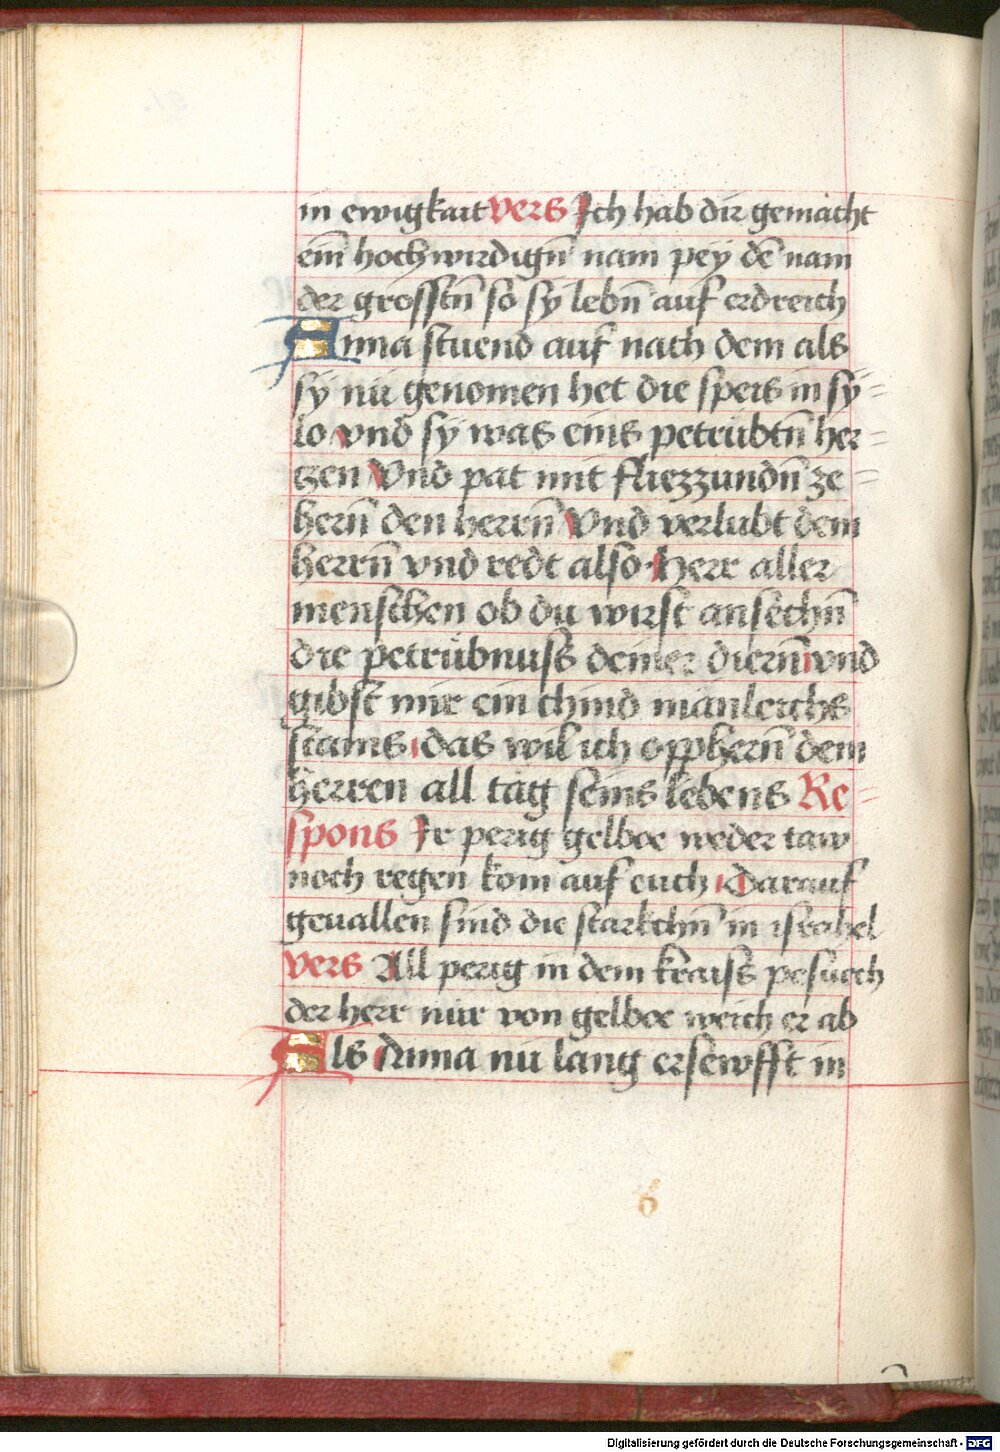 in ewigkait vers Ich hab dir gemacht
ein̄ hochwirdign̄ nam pey dē nam
der grossen̄ so sy lebn̄ auf erdreich
Anna stuend auf nach dem als
sy nü genomen het die speis in sy=
lo vnd sy was eins petrübtn̄ her=
tzen Vnd pat mit fliezzundn̄ ze=
hern̄ den herrn̄ Vnd verlubt dem
herrn̄ vnd redt also Herr aller
menschen ob du wirst ansechn̄
die petrübnuss deiner diern̄ vnd
gibst mir ein chind manleichs
stams das wil ich opphern̄ dem
herren all tag seins lebens Re=
spons Ir perig gelboe weder taw
noch regen kom auf euch Darauf
geuallen sind die starkchn̄ in israhel
vers All perig in dem kraiss pesuech
der herr nür von gelboe weich er ab
Als Anna nu lang ersewfft in
6
Digitalisierung gefördert durch die Deutsche Forschungsgemeinschaft - DFG